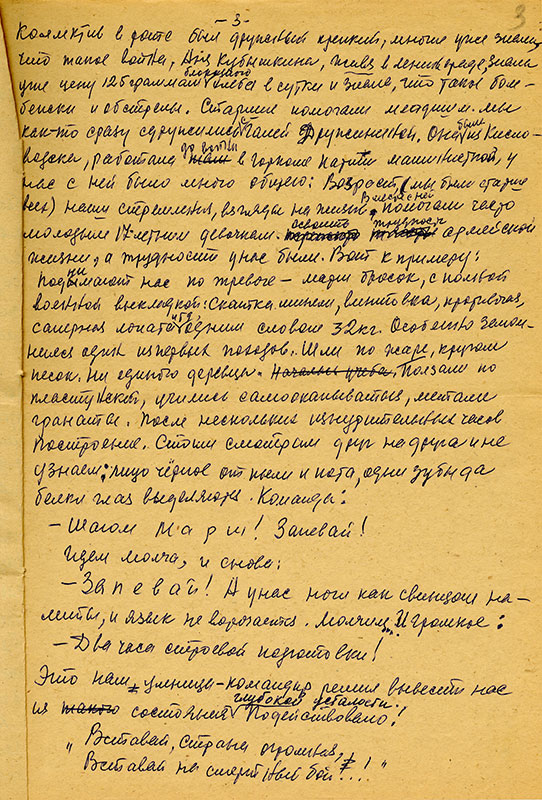 -3-
3
Коллектив в роте был дружный крепкий, многие уже знали
что такое война, Аня Кубышкина, живя в Ленинграде, знала
уже цену 125 граммам блокадного хлеба в сутки и знала, что такое бом-
бежки и обстрелы. Старшие помогали младшим. Мы
как-то сразу сдружились с Галей Дружининой. Она была из Кисло-
водска, работала до войны там в горкоме партии машинисткой, у
нас с ней было много общего: Возраст (мы были старше
всех) наши стремления, взгляды на жизнь. Вместе с ней помогали часто
молодым 17-летним девочкам освоить трудность армейской
жизни, а трудности у нас были. Вот к примеру:
Поднимают нас по тревоге - марш бросок, с полной
военной выкладкой: Скатка шинели, винтовка, противогаз,
саперная лопата и т.д., одним словом 32 кг. Особенно запом-
нился один из первых походов. Шли по жаре, кругом
песок. Ни единого деревца. Началась учеба. Ползали по
пластунски, учились самоокапываться, метали
гранаты. После нескольких изнурительных часов
построение. Стоим смотрим друг на друга и не
узнаем: лицо чёрное от пыли и пота, одни зубы да
белки глаз выделяются. Команда:
- Шагом м а р ш! Запевай!
Идем молча, и снова:
- З а п е в а й! А у нас ноги как свинцом на-
литы, и язык не ворочается. Молчим... И громкое:
- Два часа строевой подготовки!
Это нам, умница-командир решил вывести нас
из такого состояния глубокой усталости. Подействовало!
„ Вставай, страна огромная,
Вставай на смертный бой!..! "